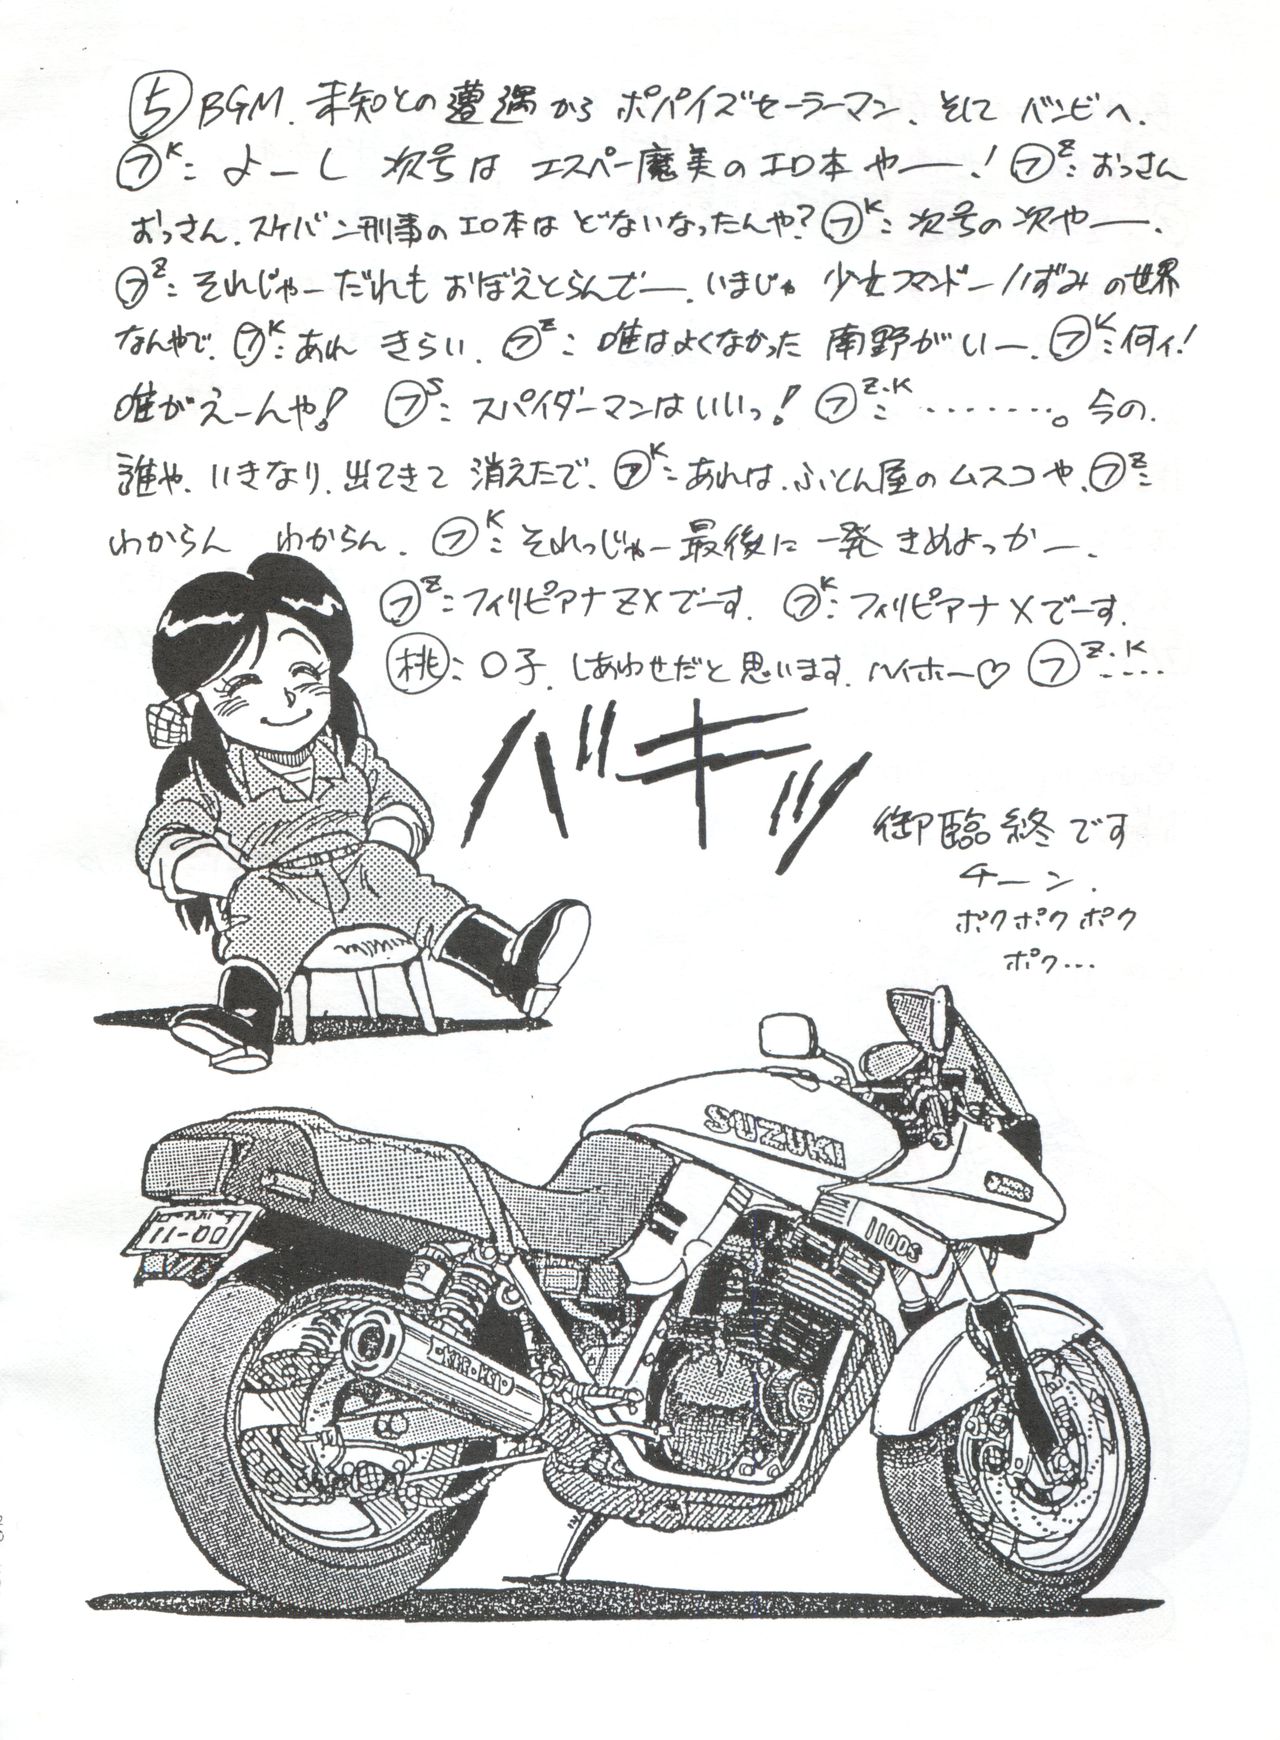 ⑤ BGM. 未知との遭遇から ポパイズセーラーマン、そして バンビへ.
㋫K: よーし 次号は エスパー魔美のエロ本やー! ㋫Z: おっさん
おっさん、スケバン刑事のエロ本は どないなったんや? ㋫K: 次号の次やー.
㋫Z: それじゃー だれも おぼえとらんでー. いまじゃ 少女コマンドーいずみ の世界
なんやで. ㋫K: あれ きらい. ㋫Z: 唯はよくなかった 南野がいー. ㋫K: 何ィ!
唯がえーんや! ㋫S: スパイダーマンはいいっ! ㋫Z・K: ・・・・・・・・。今の.
誰や、いきなり、出てきて 消えたで、 ㋫K: あれは、ふとん屋のムスコや、㋫Z:
わからん わからん. ㋫K: それっじゃー 最後に 一発 きめよっかー.
㋫Z: フィリピアナZXでーす. ㋫K: フィリピアナXでーす.
桃: 〇子、しあわせだと思います. ハイホー♡ ㋫Z・K: ・・・・
バキッ
御臨終です
チーン.
ポクポクポク
ポク…
SUZUKI
1100S
11-00